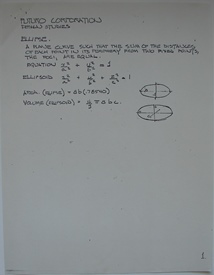 FUTURO CORPORATION
DESIGN STUDIES
ELLIPSE.
A PLANE CURVE SUCH THAT THE SUM OF THE DISTANCES
OF EACH POINT IN ITS PERIPHERY FROM TWO FIXED POINTS,
THE FOCI, ARE EQUAL.
EQUATION x²/a² + y²/b² = 1
ELLIPSOID x²/a² + y²/b² + z²/c² = 1
AREA (ELLIPSE) = ab (.7854)
VOLUME (ELLIPSOID) = 4/3 π a b c.
1